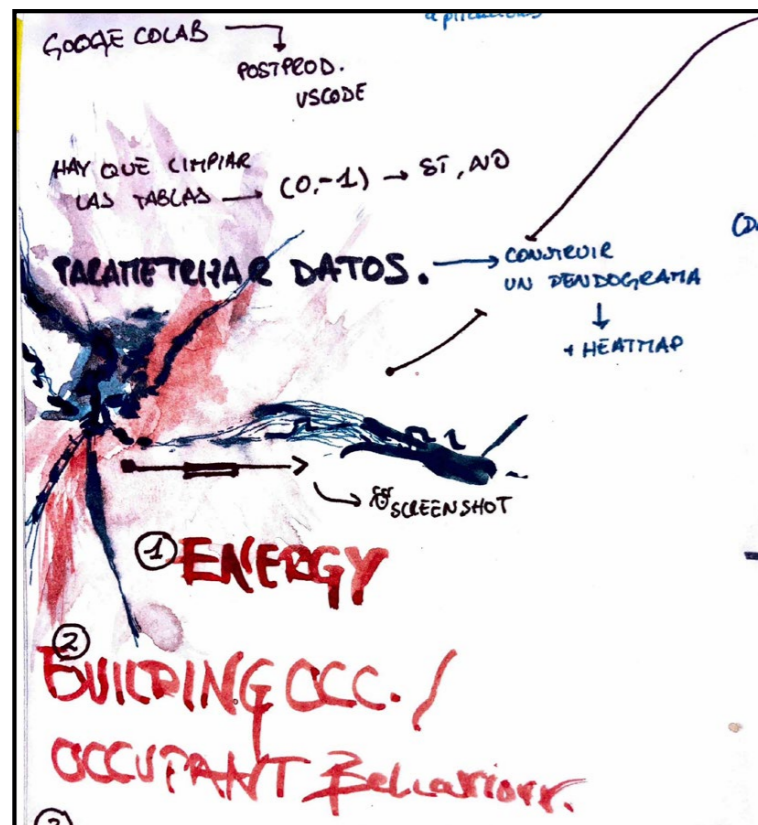 aplicaciones
GOOGE COLAB →
POSTPROD.
VSCODE
HAY QUE LIMPIAR
LAS TABLAS → (0,-1) → SI, NO
PARAMETRIZAR DATOS. →
CONSTRUIR
UN DENDOGRAMA
↓
+ HEATMAP
SCREENSHOT
1 ENERGY
2
BUILDING OCC. /
OCCUPANT Behaviour.